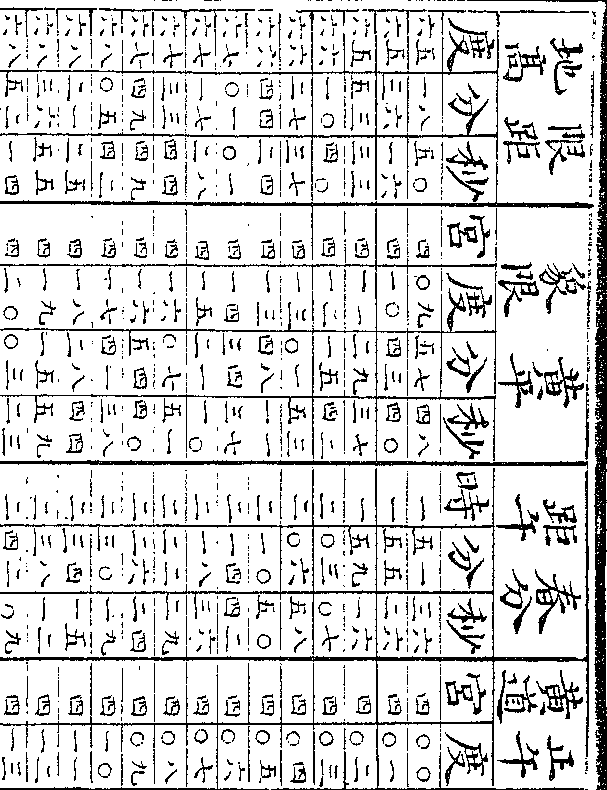 限距地高 度 分 秒 黃平象限 宮 度 分 秒 春分距午 時 分 秒 正午黃道 宮 度
六五 一八 五〇 四 〇九 五七 四八 一 五一 三六 四 〇〇
六五 三六 一六 四 一〇 四三 四〇 一 五五 二六 四 〇一
六五 五三 三三 四 一一 二九 三七 一 五九 一六 四 〇二
六六 一〇 四〇 四 一二 一五 四二 二 〇三 〇七 四 〇三
六六 二七 三七 四 一三 〇一 五三 二 〇六 五八 四 〇四
六六 四四 二四 四 一三 四八 一一 二 一〇 五〇 四 〇五
六七 〇一 〇一 四 一四 三四 三七 二 一四 四二 四 〇六
六七 一七 二八 四 一五 二一 一〇 二 一八 三六 四 〇七
六七 三三 四四 四 一六 〇七 五一 二 二二 二九 四 〇八
六七 四九 四九 四 一六 五四 四〇 二 二六 二四 四 〇九
六八 〇五 四二 四 一七 四一 三八 二 三〇 一九 四 一〇
六八 二一 二五 四 一八 二八 四四 二 三四 一五 四 一一
六八 三六 五五 四 一九 一五 五九 二 三八 一二 四 一二
六八 五二 一四 四 二〇 〇三 二三 二 四二 〇九 四 一三